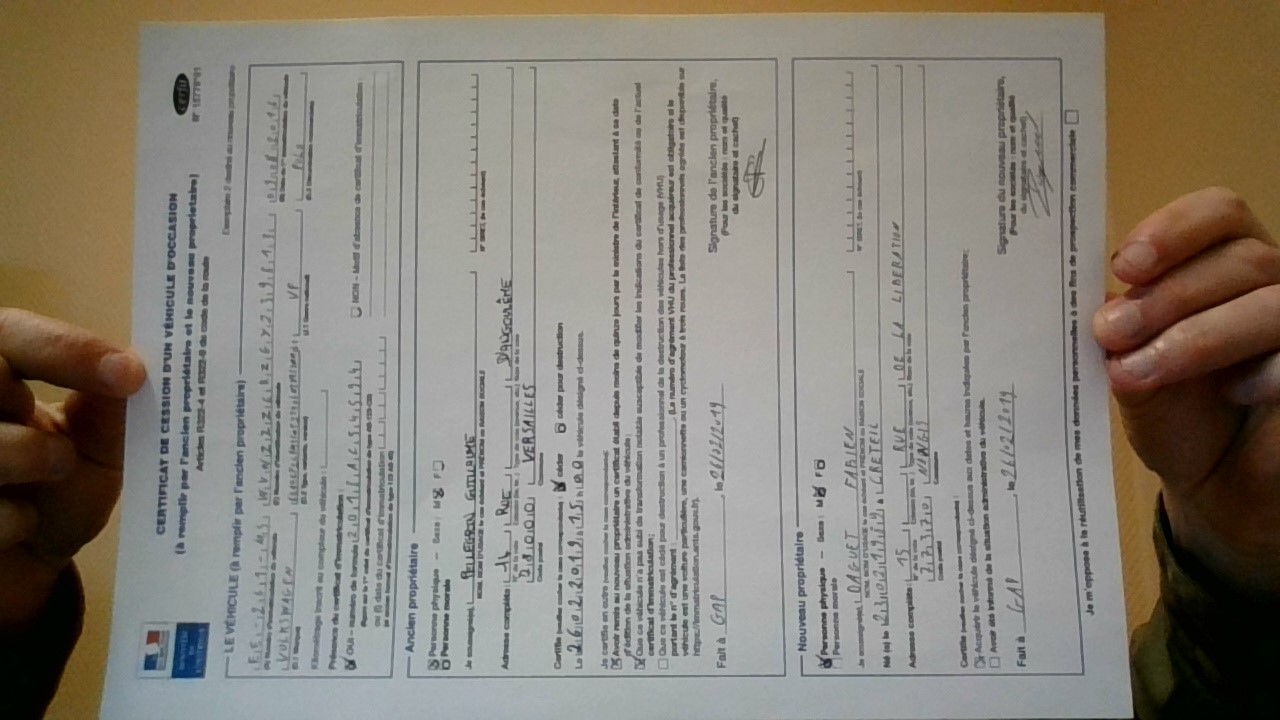 CERTIFICAT DE CESSION D'UN VÉHICULE D'OCCASION
(à remplir par l'ancien propriétaire et le nouveau propriétaire)
Articles R322-4 et R322-9 du code de la route
cerfa
Exemplaire 2 destiné au nouveau propriétaire
LE VÉHICULE (à remplir par l'ancien propriétaire)
(A) Numéro d'immatriculation du véhicule (E) Numéro d'identification du véhicule
VOLKSWAGEN VP POLO
(D.1 Marque) (D.2 Type, variante, version) (J.1 Genre national)
Kilométrage inscrit au compteur du véhicule :
Présence du certificat d'immatriculation :
OUI – numéro de formule NON – Motif d'absence de certificat d'immatriculation :
ou (I) date du certificat d'immatriculation
Ancien propriétaire
Personne physique – Sexe : M F
Personne morale
Je soussigné(e), PELLEGRIN GUILLAUME
NOM, NOM D'USAGE le cas échéant et PRÉNOM ou RAISON SOCIALE N° SIRET, (le cas échéant)
Adresse complète : 14 RUE D'ANGOULÊME
N° de la voie Extension (bis, ter, ) Type de voie (avenue, etc.) Nom de la voie
78000 VERSAILLES
Code postal Commune
Certifie (veuillez cocher la case correspondante) : céder céder pour destruction
Le 26022019 à 15 h 00 le véhicule désigné ci-dessus.
Je certifie en outre (veuillez cocher la case correspondante) :
Avoir remis au nouveau propriétaire un certificat établi depuis moins de quinze jours par le ministre de l'intérieur, attestant à sa date
d'édition de la situation administrative du véhicule ;
Que ce véhicule n'a pas subi de transformation notable susceptible de modifier les indications du certificat de conformité ou de l'actuel
certificat d'immatriculation;
Que ce véhicule est cédé pour destruction à un professionnel de la destruction des véhicules hors d'usage (VHU)
portant le n° d'agrément : (Le numéro d'agrément VHU du professionnel acquéreur est obligatoire si le
véhicule est une voiture particulière, une camionnette ou un cyclomoteur à trois roues. La liste des professionnels agréés est disponible sur
https://immatriculation.ants.gouv.fr).
Fait à GAP , le 26/02/2019
Signature de l'ancien propriétaire,
(Pour les sociétés : nom et qualité
du signataire et cachet)
Nouveau propriétaire
Personne physique – Sexe : M F
Personne morale
Je soussigné(e), DAGUET FABIEN
NOM, NOM D'USAGE le cas échéant et PRÉNOM ou RAISON SOCIALE N° SIRET, (le cas échéant)
Né (e) le 23021989 à CRETEIL
Adresse complète : 15 RUE DE LA LIBERATION
N° de la voie Extension (bis, ter, ) Type de voie (avenue, etc.) Nom de la voie
77370 NANGIS
Code postal Commune
Certifie (veuillez cocher la case correspondante) :
Acquérir le véhicule désigné ci-dessus aux dates et heures indiquées par l'ancien propriétaire;
Avoir été informé de la situation administrative du véhicule.
Fait à GAP , le 26/02/2019
Signature du nouveau propriétaire,
(Pour les sociétés : nom et qualité
du signataire et cachet)
Je m'oppose à la réutilisation de mes données personnelles à des fins de prospection commerciale